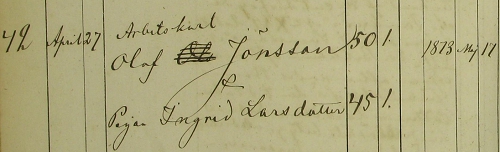 42 April 27 Arbetskarl
Olof Jönsson 50 1. 1873 Maj 17
&
Pigan Ingrid Larsdotter 45 1.